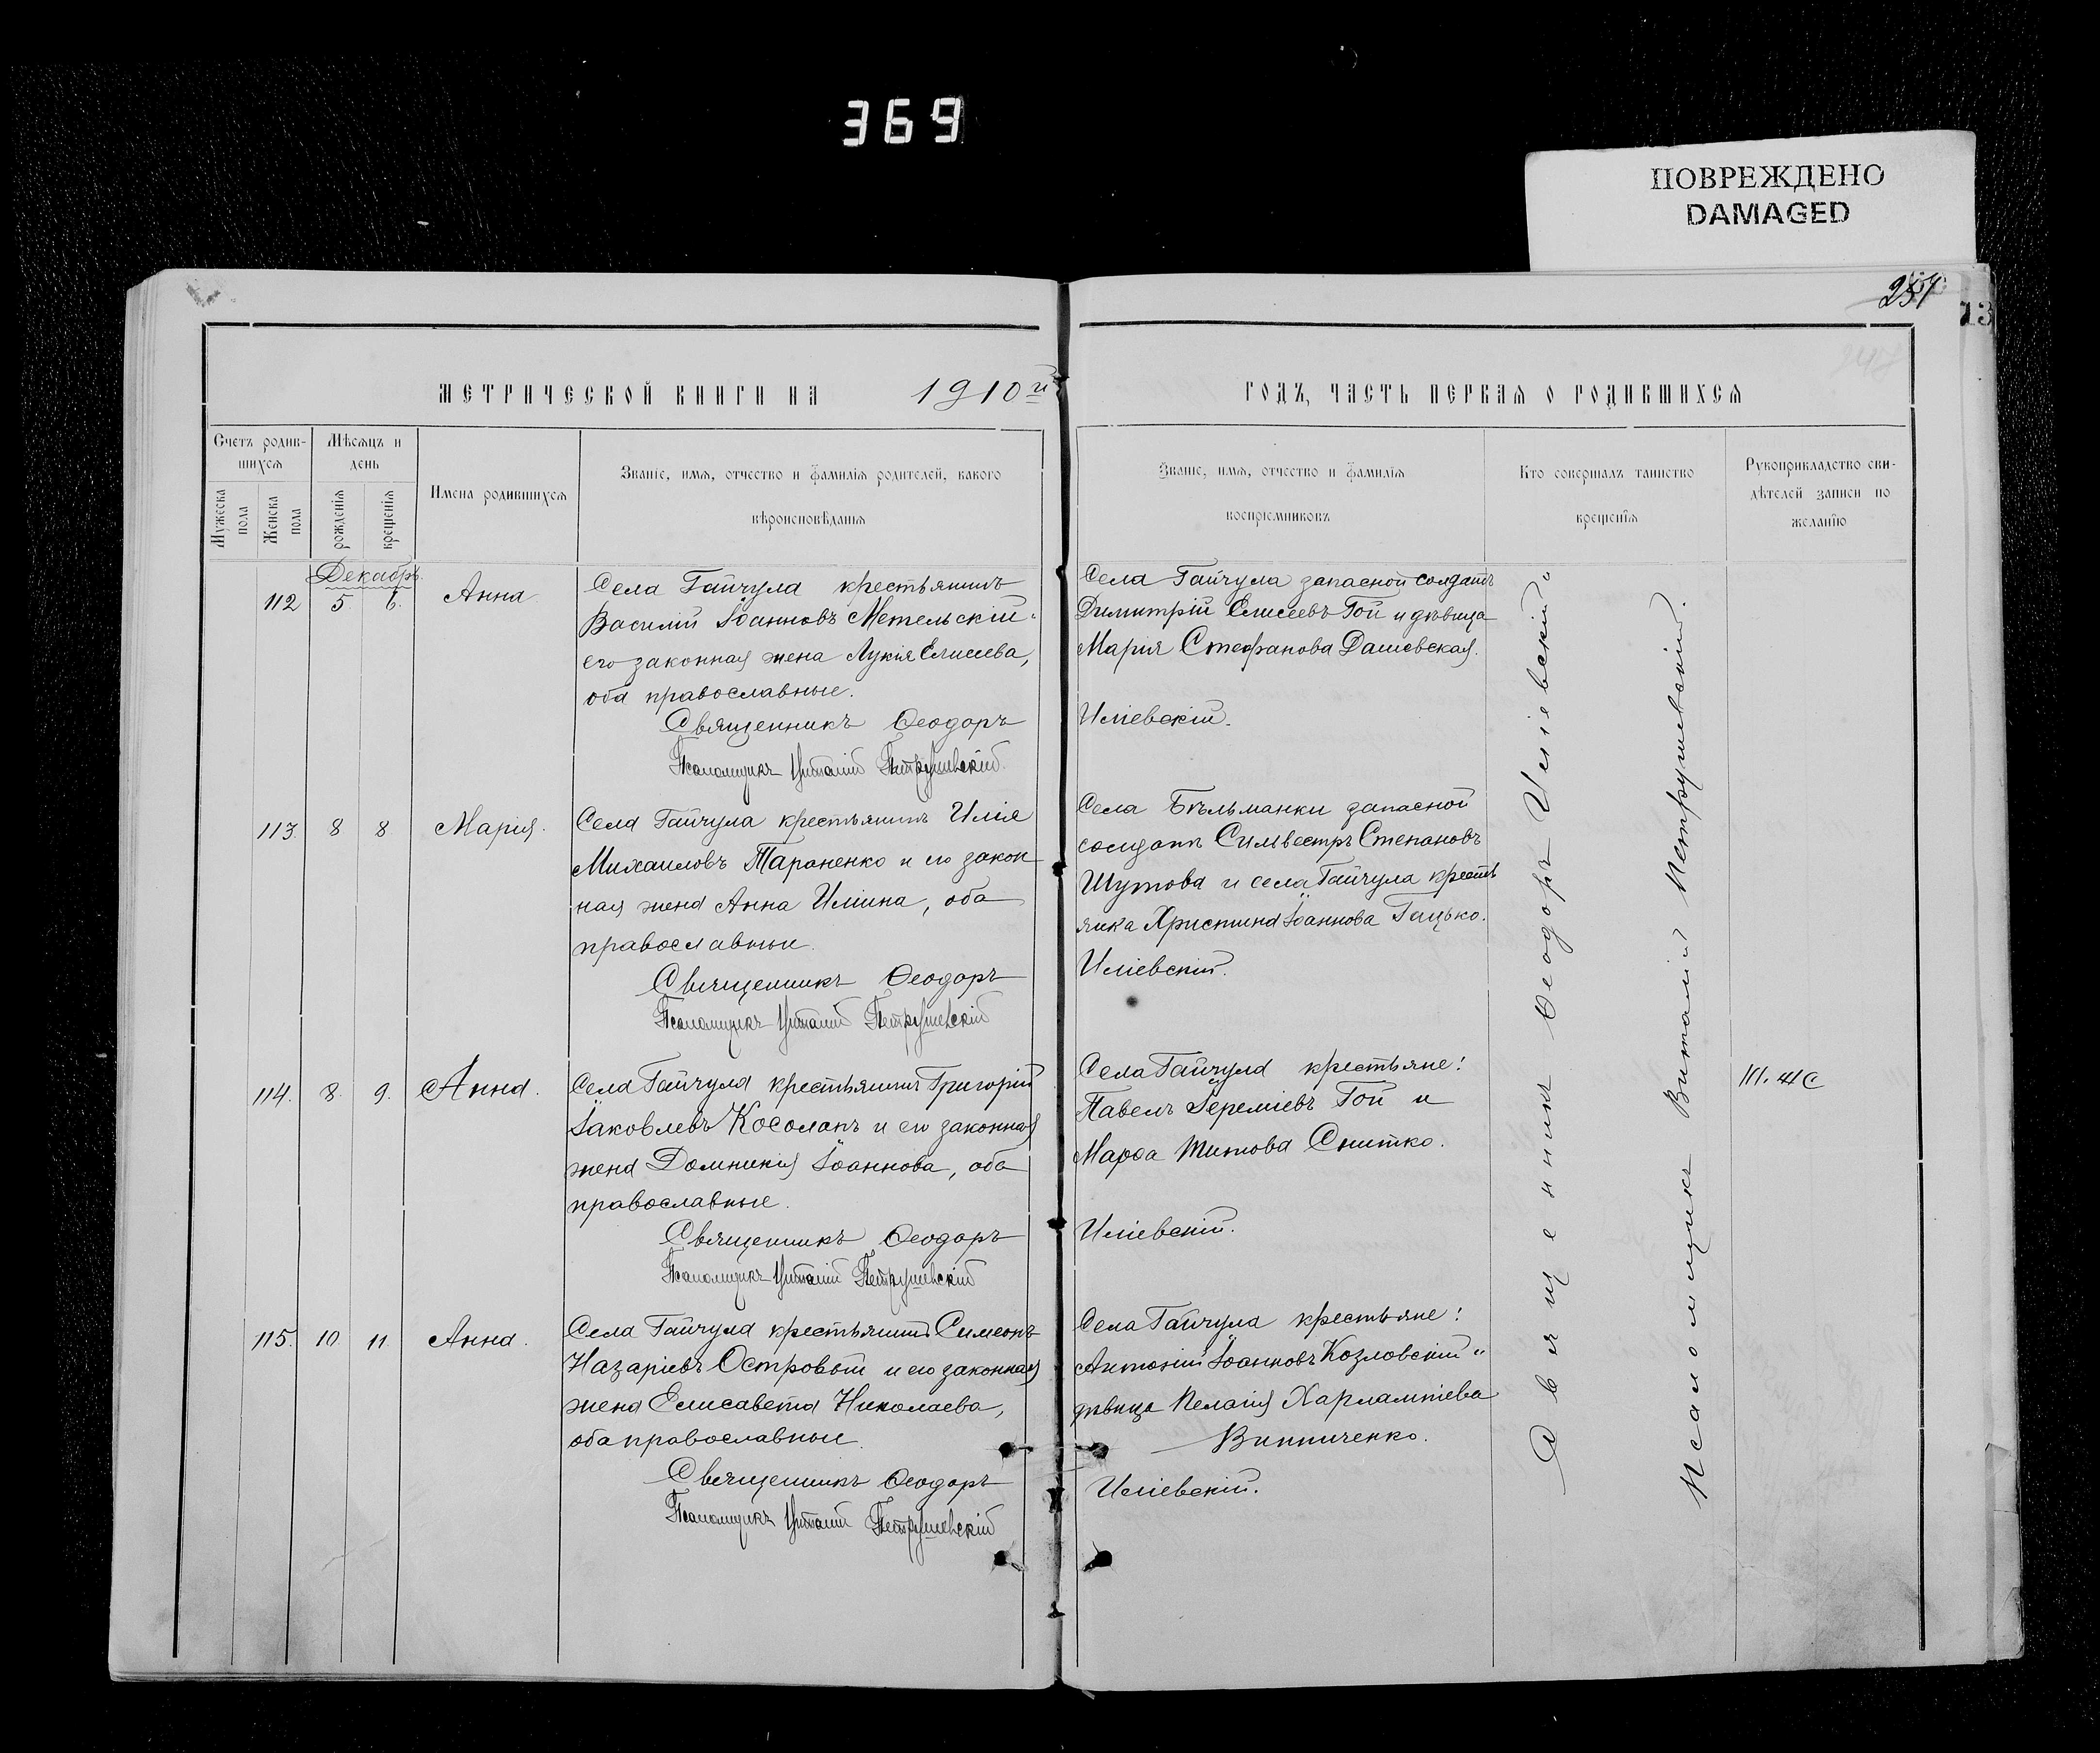 369
ПОВРЕЖДЕНО
DAMAGED
257
13
МЕТРИЧЕСКОЙ КНИГИ НА 1910й
ГОДЪ, ЧАСТЬ ПЕРВАЯ О РОДИВШИХСЯ
Счетъ родив-
шихся
Мужеска пола
Женска пола
Мѣсяцъ и
день
рожденія
крещенія
Имена родившихся
Званіе, имя, отчество и фамилія родителей, какого
вѣроисповѣданія
Званіе, имя, отчество и фамилія
воспріемниковъ
Кто совершалъ таинство
крещенія
Рукоприкладство сви-
дѣтелей записи по
желанію
Декабрь.
112 5. 6. Анна
Села Гайчула крестьянинъ
Василій Іоанновъ Метельскій и
его законная жена Лукія Елисеева,
оба православные.
Священникъ Ѳеодоръ
Псаломщикъ Виталій Петрушевскій.
Села Гайчула запасной солдатъ
Димитрій Елисеевъ Гой и дѣвица
Марія Стефанова Дашевская.
Иліевскій.
113. 8 8 Марія.
Села Гайчула крестьянинъ Илія
Михаиловъ Тараненко и его закон
ная жена Анна Иліина, оба
православные.
Священникъ Ѳеодоръ
Псаломщикъ Виталій Петрушевскій
Села Бѣльманки запасной
солдатъ Сильвестръ Степановъ
Шутова и села Гайчула кресть
янка Христина Іоаннова Гацько.
Иліевскій.
114. 8. 9. Анна.
Села Гайчула крестьянинъ Григорій
Іаковлевъ Косолапъ и его законная
жена Домникія Іоаннова, оба
православные.
Священникъ Ѳеодоръ
Псаломщикъ Виталій Петрушевскій
Села Гайчула крестьяне:
Павелъ Іереміевъ Гой и
Марѳа Титова Снитко.
Иліевскій.
115. 10. 11. Анна.
Села Гайчула крестьянинъ Симеонъ
Назаріевъ Островой и его законная
жена Елисавета Николаева,
оба православные.
Священникъ Ѳеодоръ
Псаломщикъ Виталій Петрушевскій
Села Гайчула крестьяне:
Антоній Іоанновъ Козловскій и
дѣвица Пелагія Харлампіева
Винниченко.
Иліевскій.
Священникъ Ѳеодоръ Иліевскій
Псаломщикъ Виталій Петрушевскій.